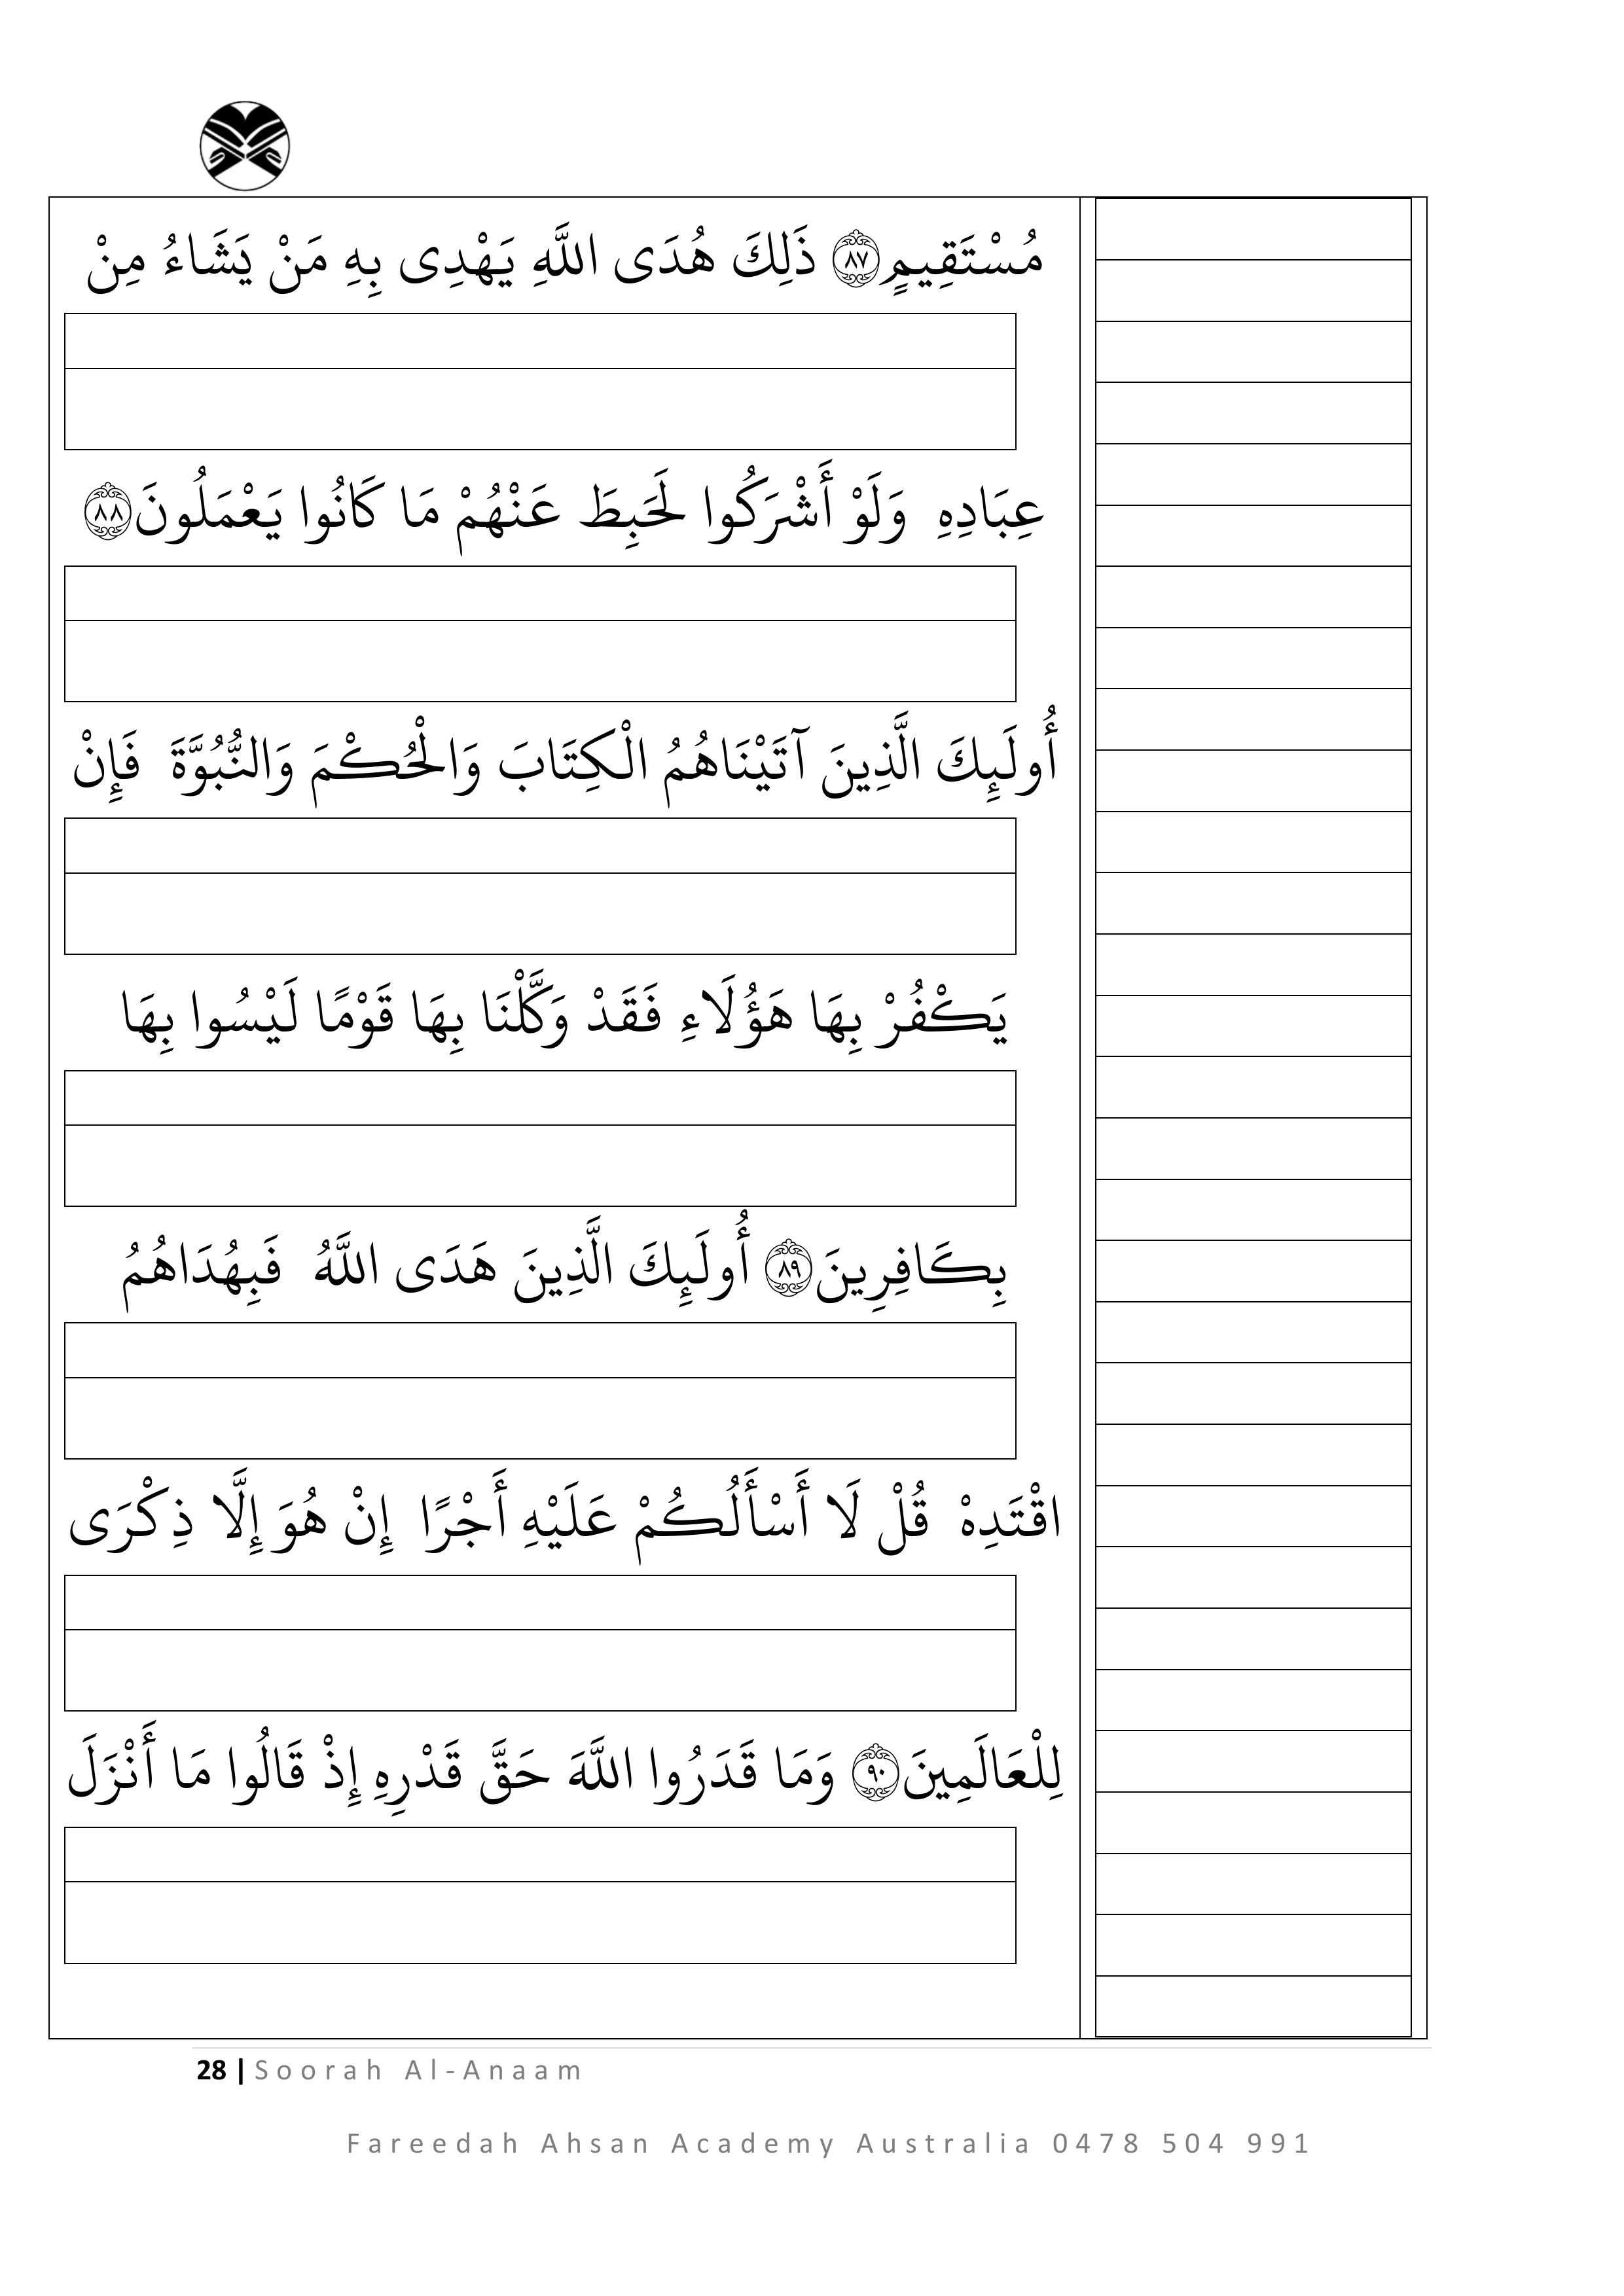 مُسْتَقِيمٍ ﴿٨٧﴾ ذَلِكَ هُدَى اللَّهِ يَهْدِى بِهِ مَنْ يَشَاءُ مِنْ
عِبَادِهِ وَلَوْ أَشْرَكُوا لَحَبِطَ عَنْهُمْ مَا كَانُوا يَعْمَلُونَ ﴿٨٨﴾
أُولَئِكَ الَّذِينَ آتَيْنَاهُمُ الْكِتَابَ وَالْحُكْمَ وَالنُّبُوَّةَ فَإِنْ
يَكْفُرْ بِهَا هَؤُلَاءِ فَقَدْ وَكَّلْنَا بِهَا قَوْمًا لَيْسُوا بِهَا
بِكَافِرِينَ ﴿٨٩﴾ أُولَئِكَ الَّذِينَ هَدَى اللَّهُ فَبِهُدَاهُمُ
اقْتَدِهْ قُلْ لَا أَسْأَلُكُمْ عَلَيْهِ أَجْرًا إِنْ هُوَ إِلَّا ذِكْرَى
لِلْعَالَمِينَ ﴿٩٠﴾ وَمَا قَدَرُوا اللَّهَ حَقَّ قَدْرِهِ إِذْ قَالُوا مَا أَنْزَلَ
28 | Soorah Al-Anaam
Fareedah Ahsan Academy Australia 0478 504 991